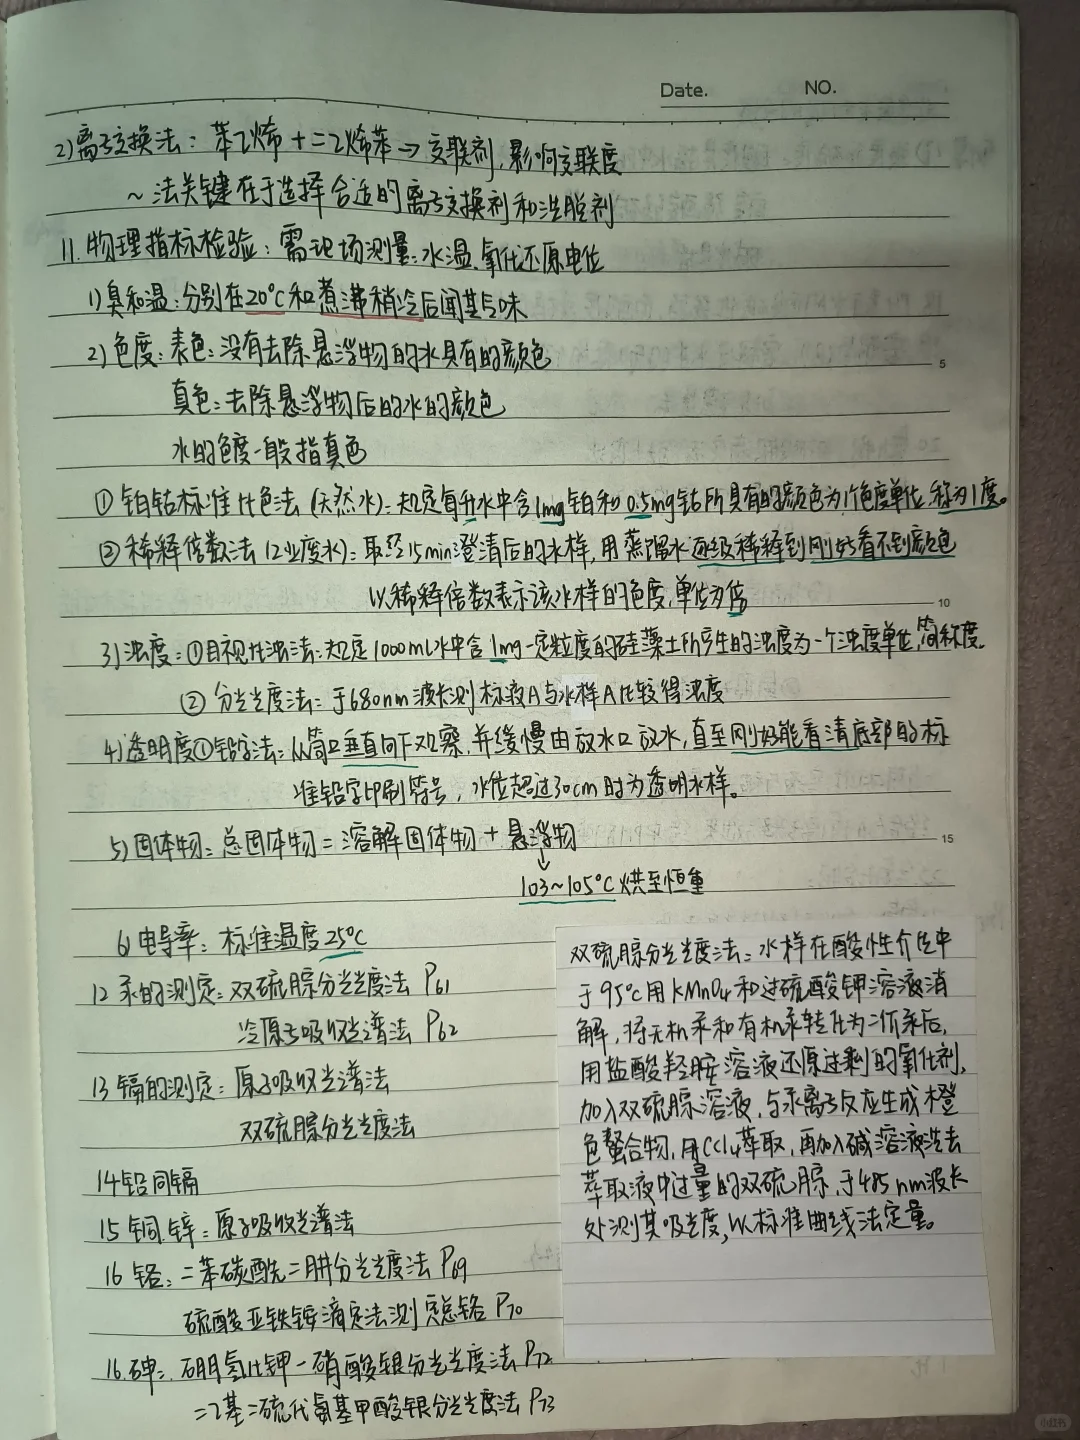 Date. NO.
2)离子交换法：苯乙烯+二乙烯苯→交联剂,影响交联度
~法关键在于选择合适的离子交换剂和洗脱剂
11.物理指标检验：需现场测量:水温、氧化还原电位
1)臭和温:分别在20°C和煮沸稍冷后闻其气味
2)色度:表色:没有去除悬浮物的水具有的颜色
5
真色:去除悬浮物后的水的颜色
水的色度一般指真色
①铂钴标准比色法(天然水):规定每升水中含1mg铂和0.5mg钴所具有的颜色为1个色度单位,称为1度。
②稀释倍数法(工业废水):取经15min澄清后的水样,用蒸馏水逐级稀释到刚好看不到颜色
以稀释倍数表示该水样的色度,单位为倍
10
3)浊度:①目视比浊法:规定1000mL水中含1mg一定粒度的硅藻土所产生的浊度为一个浊度单位,简称度。
②分光光度法:于680nm波长测标液A与水样A比较得浊度
4)透明度①铅字法:从筒口垂直向下观察,并缓慢由放水口放水,直至刚好能看清底部的标
准铅字印刷符号,水位超过30cm时为透明水样。
5)固体物:总固体物=溶解固体物+悬浮物
15
↓
103~105°C烘至恒重
6)电导率:标准温度25°C
12汞的测定:双硫腙分光光度法 P61
冷原子吸收光谱法 P62
13镉的测定:原子吸收光谱法
双硫腙分光光度法
14铅同镉
15铜.锌:原子吸收光谱法
16铬:二苯碳酰二肼分光光度法 P69
硫酸亚铁铵滴定法测定总铬 P70
16.砷:硼氢化钾-硝酸银分光光度法 P72
二乙基二硫代氨基甲酸银分光光度法 P73
双硫腙分光光度法:水样在酸性介质中
于95°C用KMnO4和过硫酸钾溶液消
解,将无机汞和有机汞转化为二价汞后,
用盐酸羟胺溶液还原过剩的氧化剂,
加入双硫腙溶液,与汞离子反应生成橙
色螯合物,用CCl4萃取,再加入碱溶液洗去
萃取液中过量的双硫腙,于485nm波长
处测其吸光度,以标准曲线法定量。
小红书